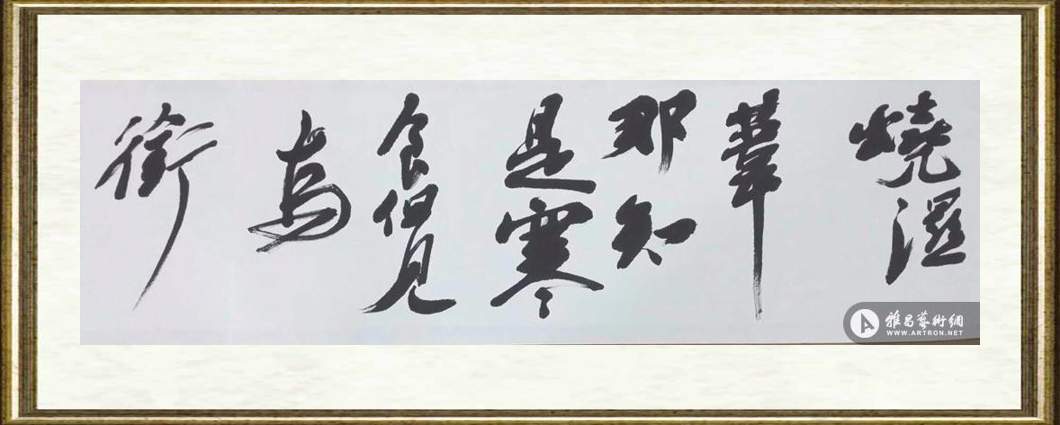 燒濕
葦
那知
是寒
食但見
烏
銜
雅昌藝術網
WWW.ARTRON.NET